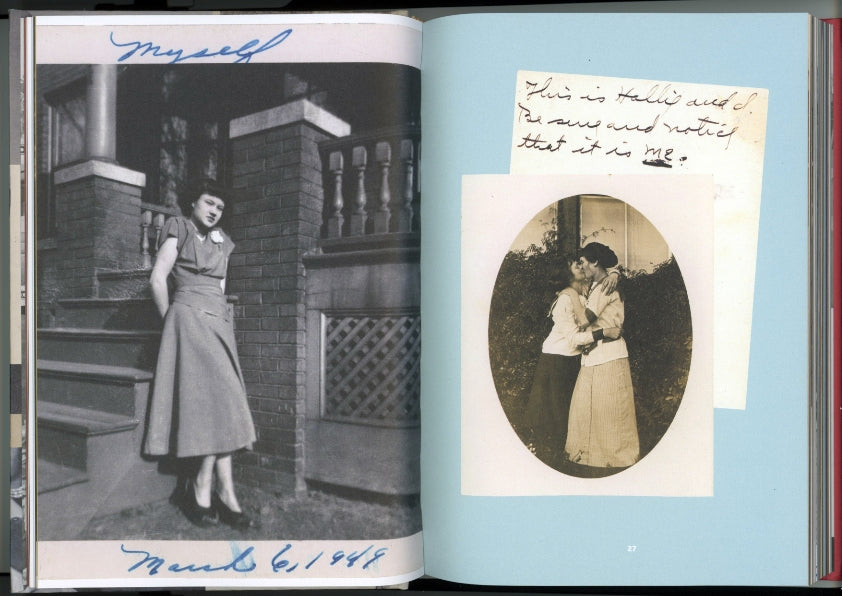 Myself
March 6, 1949
This is Hallie and I.
Be sure and notice
that it is me.
27